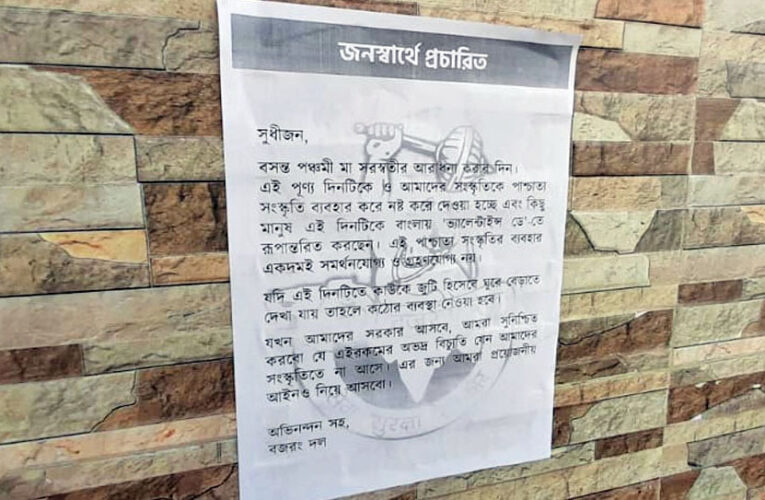 জনস্বার্থে প্রচারিত
সুধীজন,
বসন্ত পঞ্চমী মা সরস্বতীর আরাধনা করার দিন।
এই পূণ্য দিনটিকে ও আমাদের সংস্কৃতিকে পাশ্চাত্য
সংস্কৃতি ব্যবহার করে নষ্ট করে দেওয়া হচ্ছে এবং কিছু
মানুষ এই দিনটিকে বাংলায় 'ভ্যালেন্টাইন্স ডে'-তে
রূপান্তরিত করছেন। এই পাশ্চাত্য সংস্কৃতির ব্যবহার
একদমই সমর্থনযোগ্য ও গ্রহণযোগ্য নয়।
যদি এই দিনটিতে কাউকে জুটি হিসেবে ঘুরে বেড়াতে
দেখা যায় তাহলে কঠোর ব্যবস্থা নেওয়া হবে।
যখন আমাদের সরকার আসবে, আমরা সুনিশ্চিত
করবো যে এইরকমের অভদ্র বিচ্যুতি যেন আমাদের
সংস্কৃতিতে না আসে। এর জন্য আমরা প্রয়োজনীয়
আইনও নিয়ে আসবো।
सुरक्षा
অভিনন্দন সহ,
বজরং দল